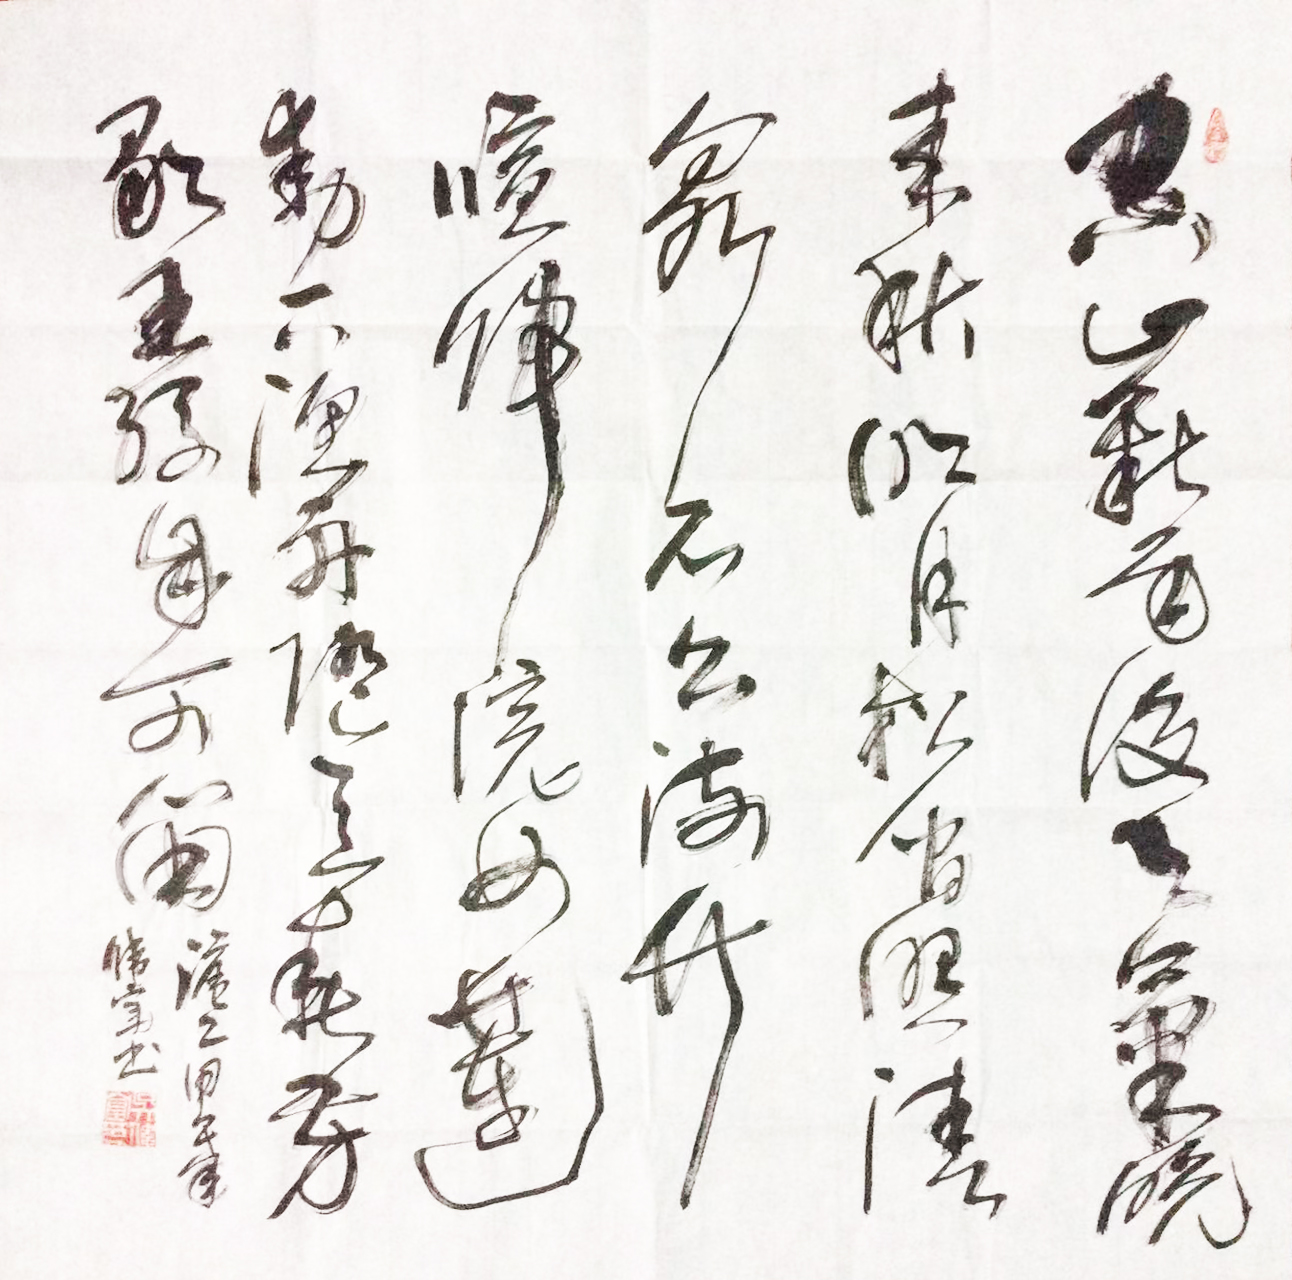 空山新雨後天氣晚
來秋明月松間照清
泉石上流竹
喧歸浣女蓮
動下漁舟隨意春芳
歇王孫自可留
甲午年
書